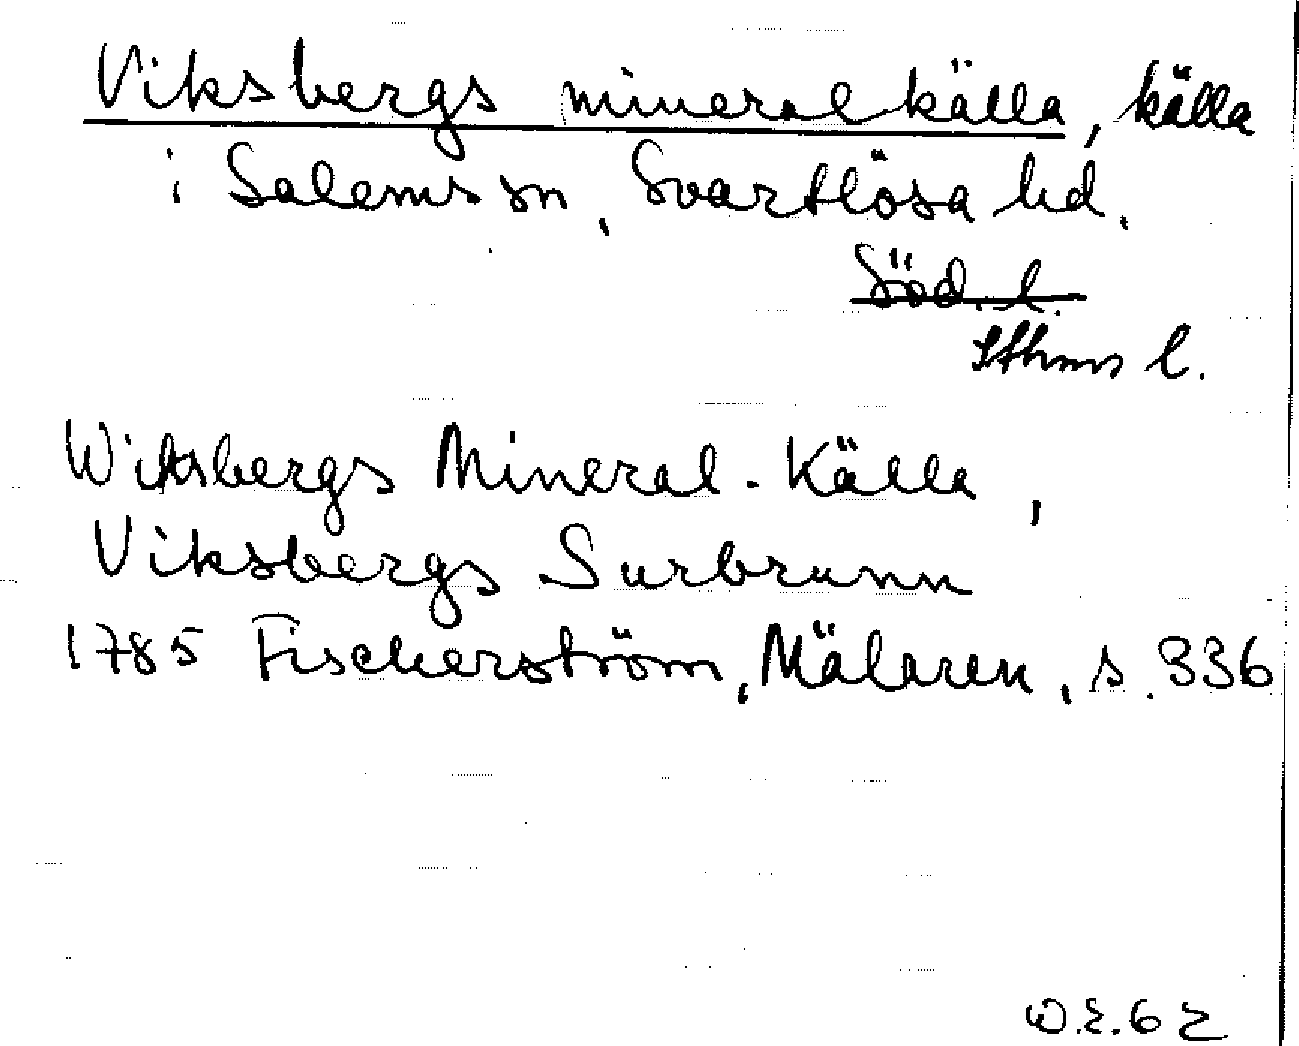 Viksbergs mineralkälla, källa
i Salems sn, Svartlösa hd.
Söd. l.
Sthms l.
Wiksbergs Mineral-Källa,
Viksbergs Surbrunn
1785 Fischerström, Mälaren, s. 336
W.E.62